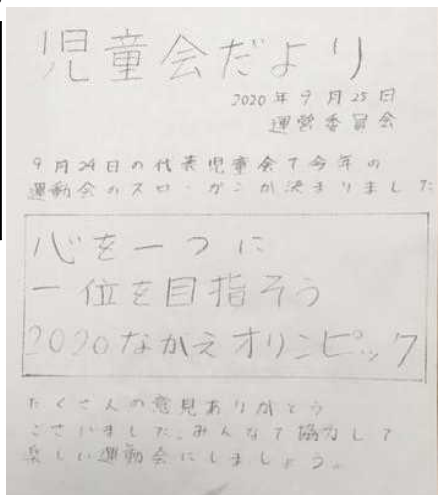 児童会だより
2020年9月25日
運営委員会
9月24日の代表児童会で今年の
運動会のスローガンが決まりました
心を一つに
一位を目指そう
2020なかえオリンピック
たくさんの意見ありがとう
ございました。みんなで協力して
楽しい運動会にしましょう。